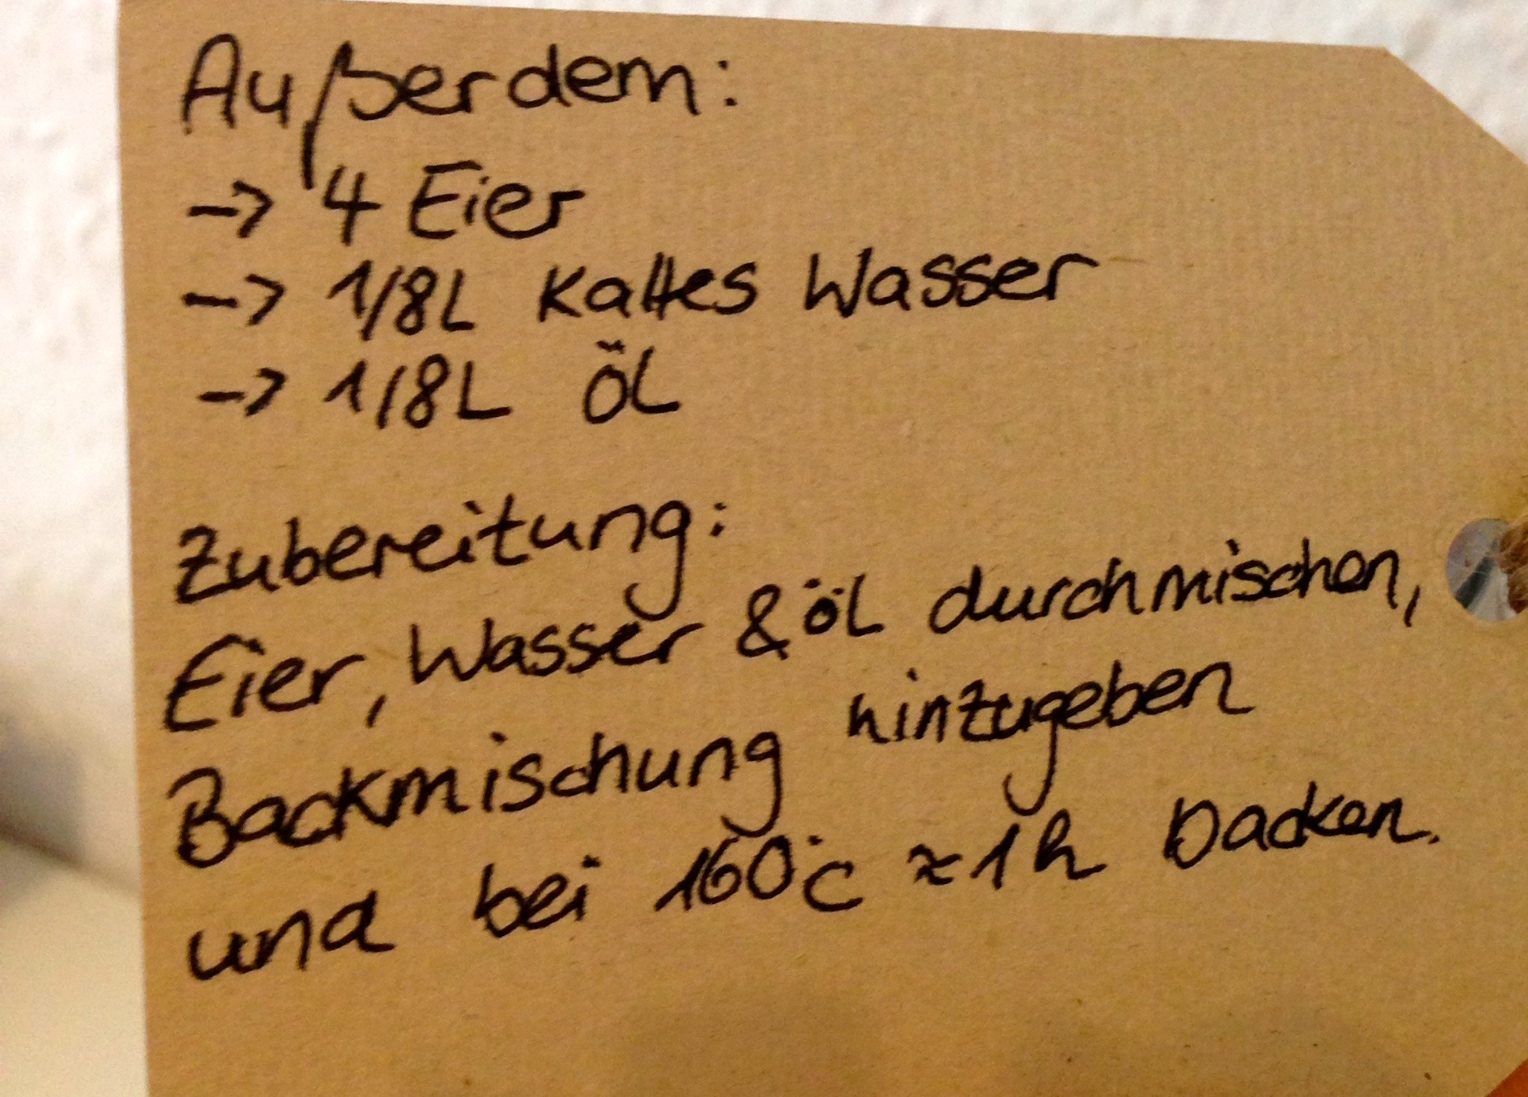 Außerdem:
-> 4 Eier
-> 1/8L kaltes Wasser
-> 1/8L ÖL
Zubereitung:
Eier, Wasser & öL durchmischen,
Backmischung hinzugeben
und bei 160°C ≈1h backen.